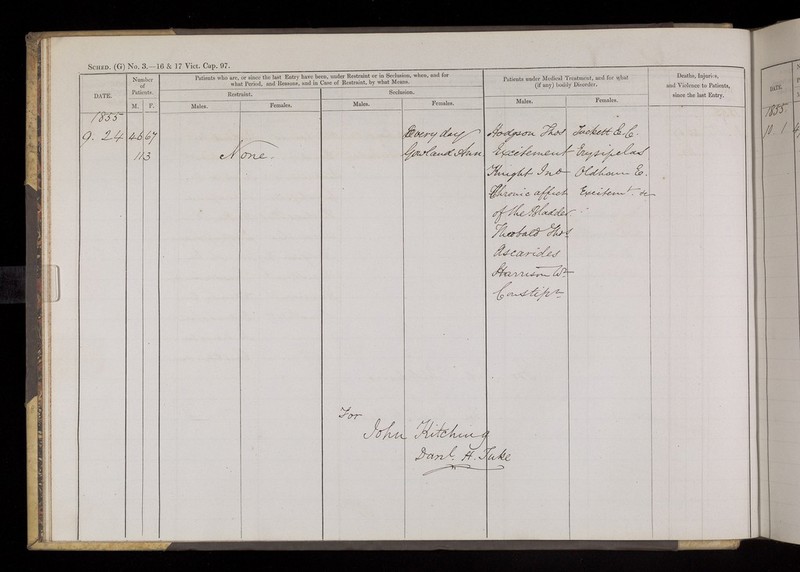 SCHED. (G) No. 3.—16 & 17 Vict. Cap. 97.
DATE.
Number of Patients.
M. F.
Patients who are, or since the last Entry have been, under Restraint or in Seclusion, when, and for
what Period, and Reasons, and in Case of Restraint, by what Means.
Restraint.
Seclusion.
Males. Females. Males. Females.
Patients under Medical Treatment, and for what
(if any) bodily Disorder.
Males. Females.
Deaths, Injuries,
and Violence to Patients,
since the last Entry.
1855
9. 24 46 67
113
None.
Every day
Gowland Ann
Hodgson Thos
Excitement
Knight Jno
Chronic affectn
of the Bladder
Theobald Thos
Ascarides
Harrison Wm
Constipn
Tuckett E. C.
Erysipelas
Oldham E.
Excitemt. &c
For
John Kitching
Danl. H. Tuke
DATE.
1855
10. 1